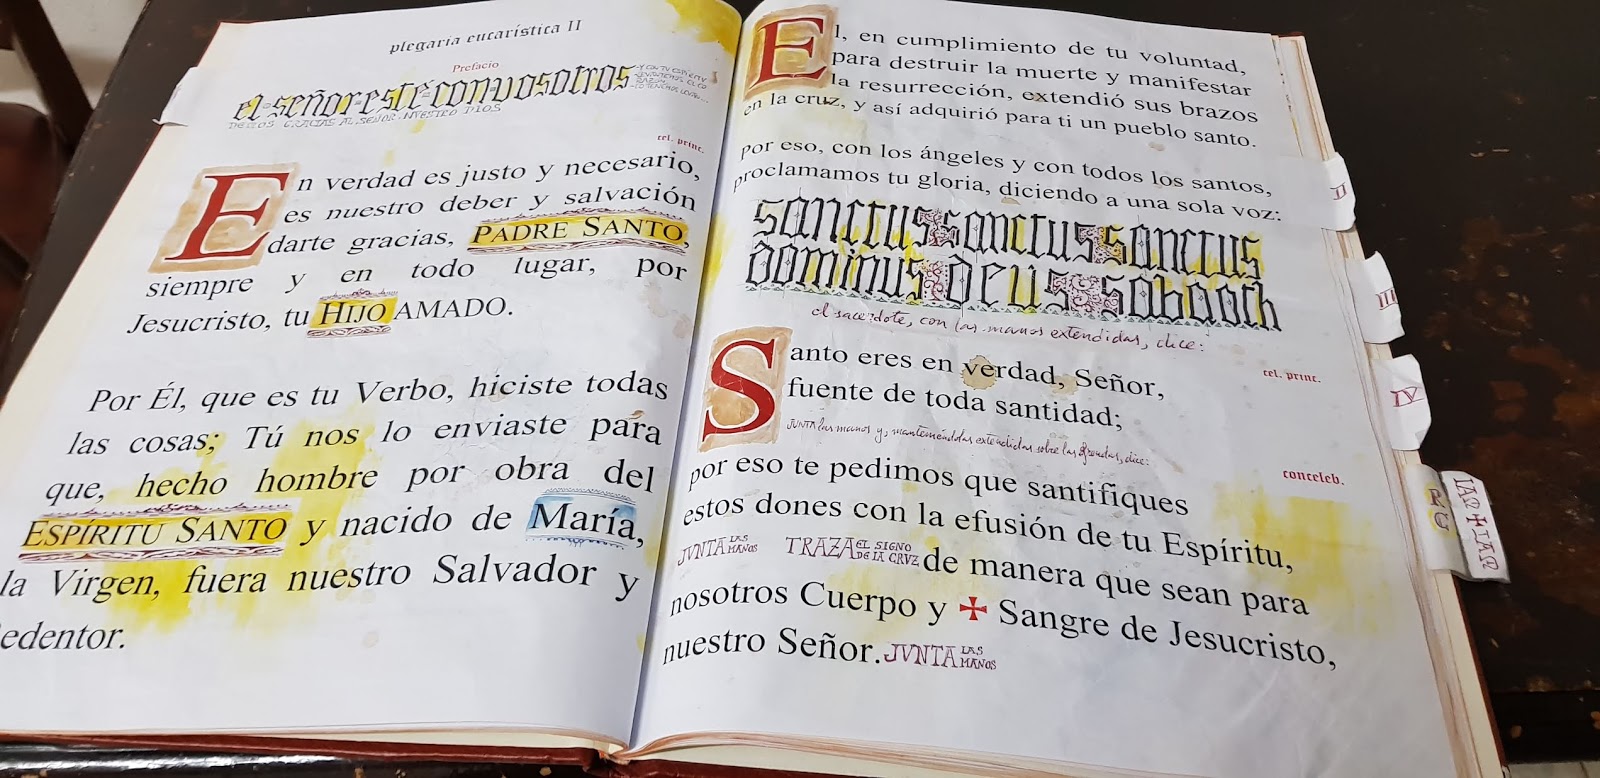 plegaria eucarística II
Prefacio
el señor esté con vosotros
Y CON TU ESPÍRITU
LEVANTEMOS EL CO
RAZÓN
LO TENEMOS LEVAN...
DEMOS GRACIAS AL SEÑOR NUESTRO DIOS
cel. princ.
En verdad es justo y necesario,
es nuestro deber y salvación
darte gracias, PADRE SANTO,
siempre y en todo lugar, por
Jesucristo, tu HIJO AMADO.
Por Él, que es tu Verbo, hiciste todas
las cosas; Tú nos lo enviaste para
que, hecho hombre por obra del
ESPÍRITU SANTO y nacido de María,
la Virgen, fuera nuestro Salvador y
Redentor.
Él, en cumplimiento de tu voluntad,
para destruir la muerte y manifestar
la resurrección, extendió sus brazos
en la cruz, y así adquirió para ti un pueblo santo.
Por eso, con los ángeles y con todos los santos,
proclamamos tu gloria, diciendo a una sola voz:
sanctus sanctus sanctus
dominus deus sabaoth
el sacerdote, con las manos extendidas, dice:
cel. princ.
Santo eres en verdad, Señor,
fuente de toda santidad;
JUNTA las manos y, manteniéndolas extendidas sobre las ofrendas, dice:
conceleb.
por eso te pedimos que santifiques
estos dones con la efusión de tu Espíritu,
JVNTA LAS MANOS TRAZA EL SIGNO DE LA CRVZ de manera que sean para
nosotros Cuerpo y ✠ Sangre de Jesucristo,
nuestro Señor. JVNTA LAS MANOS
II
III
IV